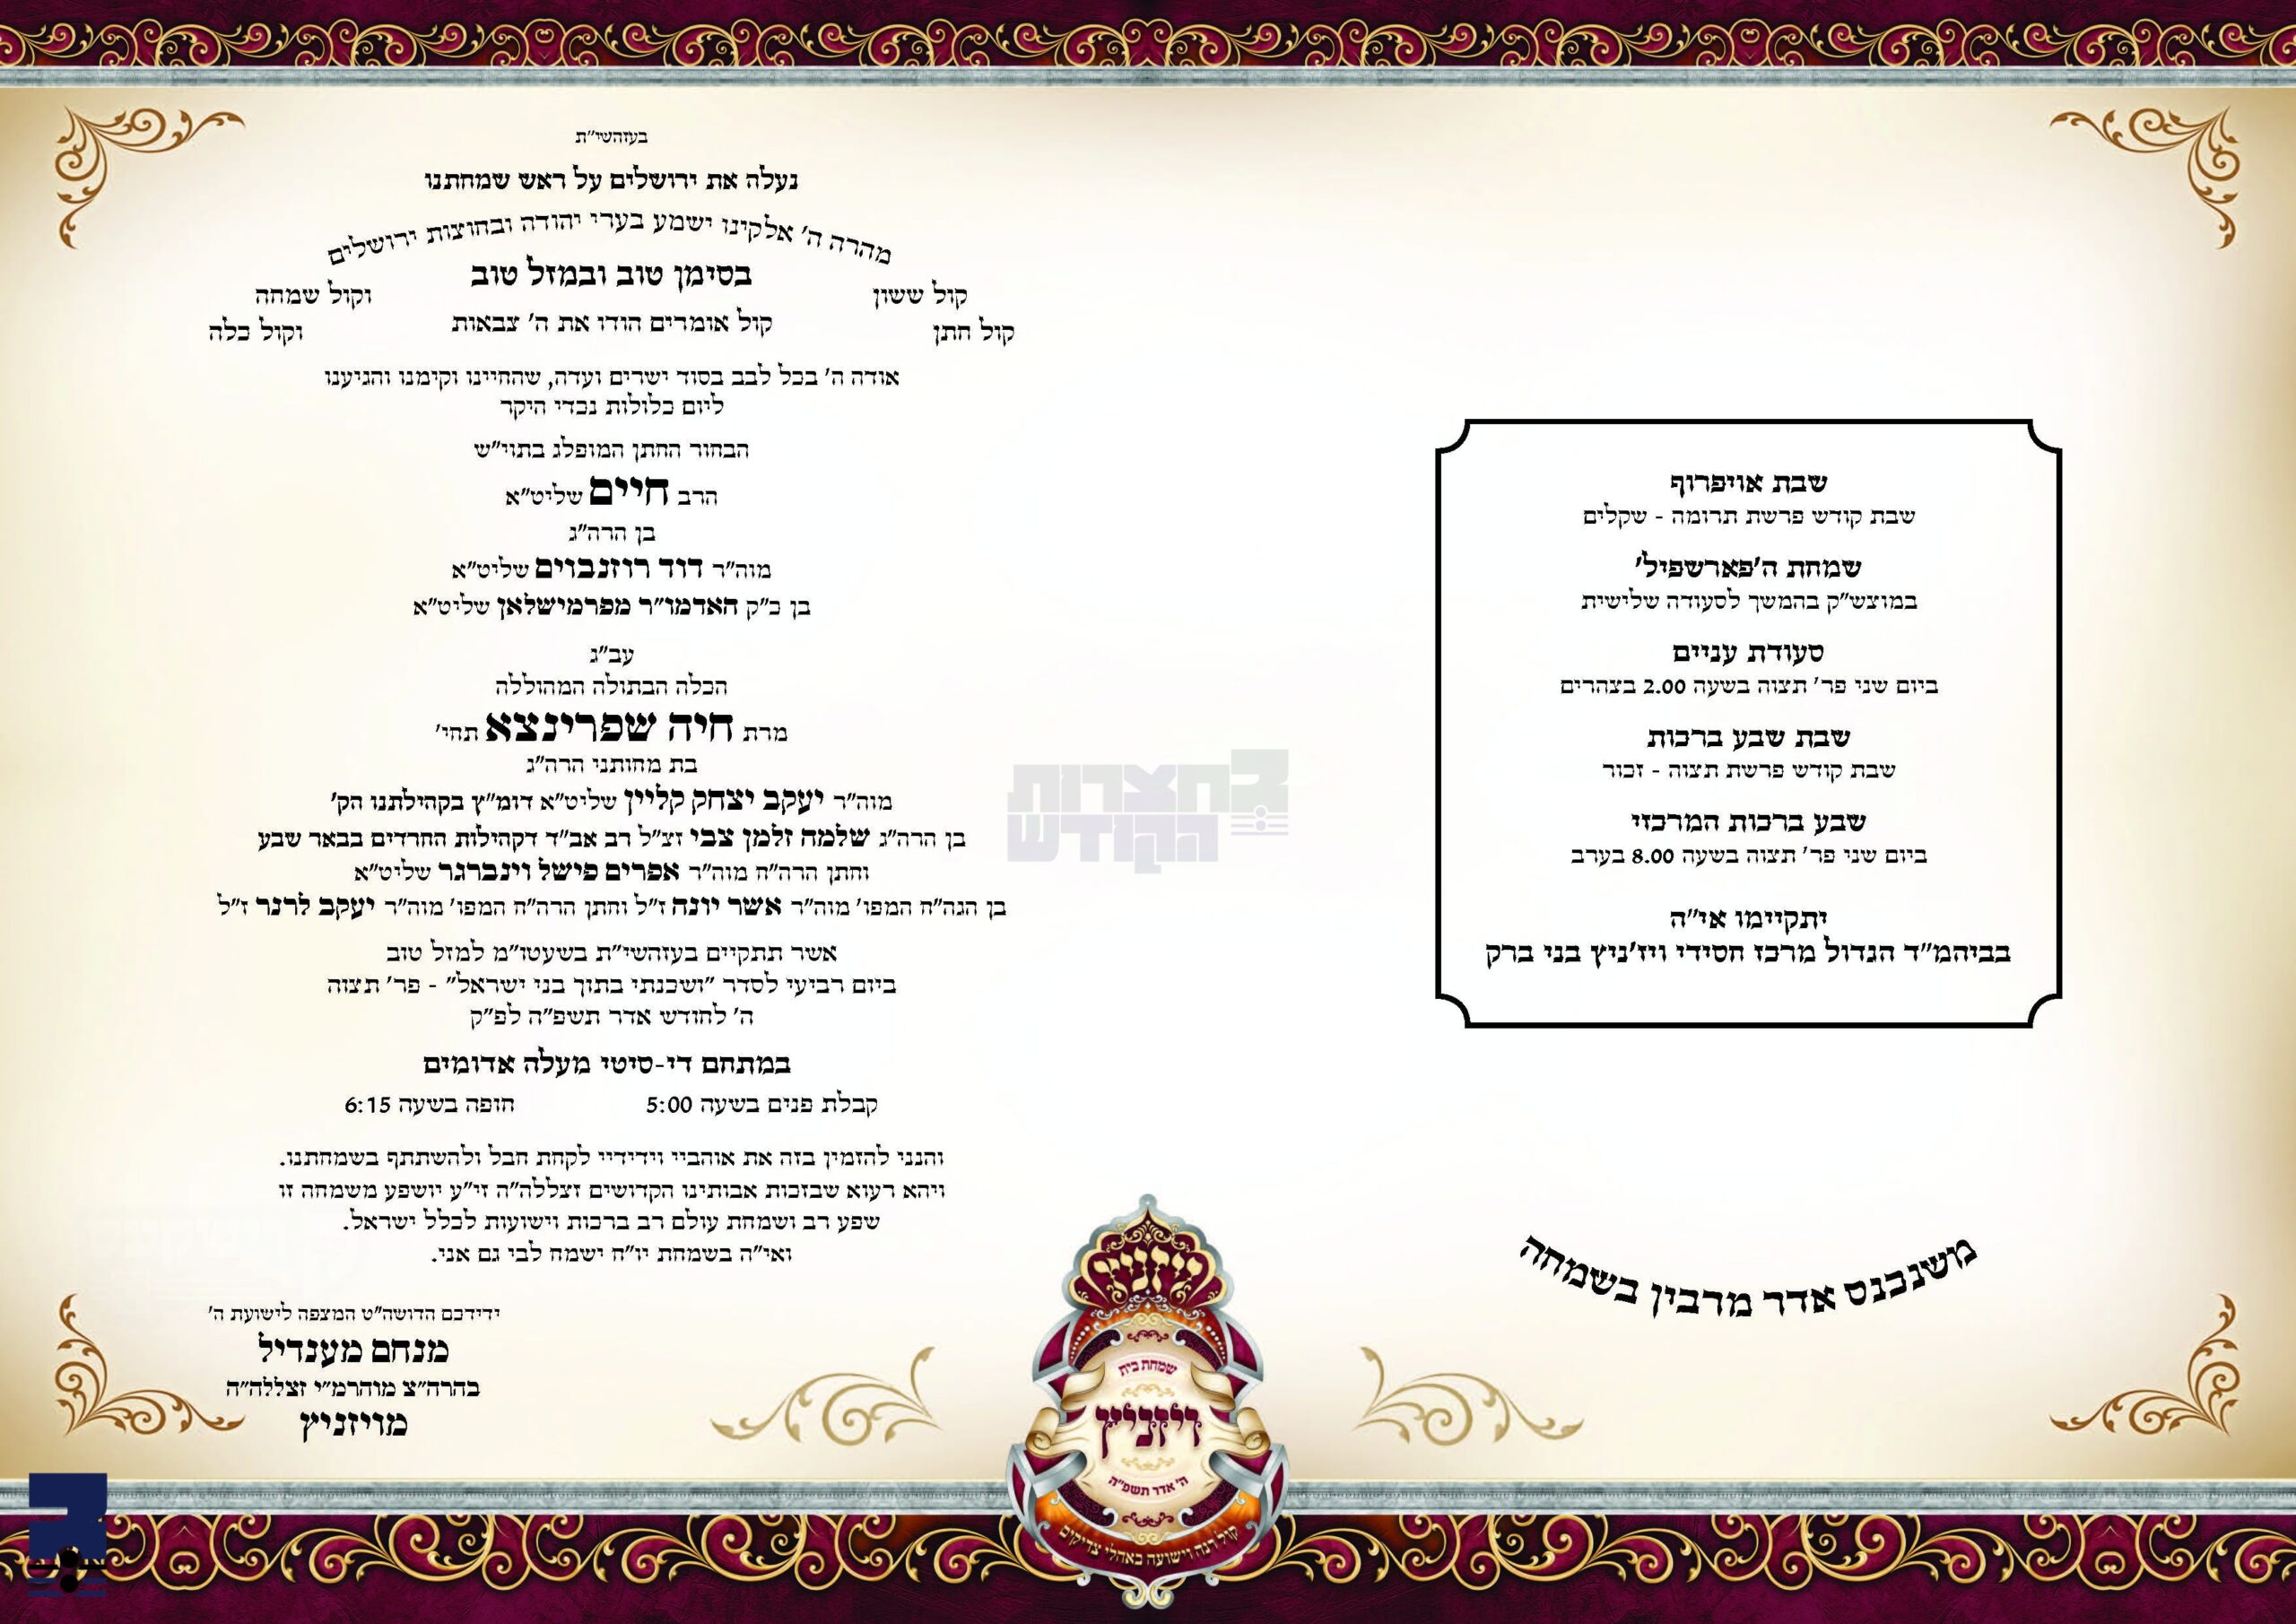 בעזהשי"ת
נעלה את ירושלים על ראש שמחתנו
מהרה ה' אלקינו ישמע בערי יהודה ובחוצות ירושלים
בסימן טוב ובמזל טוב
קול ששון וקול שמחה
קול אומרים הודו את ה' צבאות
קול חתן וקול כלה
אודה ה' בכל לבב בסוד ישרים ועדה, שהחיינו וקימנו והגיענו
ליום כלולות נכדי היקר
הבחור החתן המופלג בתוי"ש
הרב חיים שליט"א
בן הרה"ג
מוה"ר דוד רוזנבוים שליט"א
בן כ"ק האדמו"ר מפרמישלאן שליט"א
עב"ג
הכלה הבתולה המהוללה
מרת חיה שפרינצא תחי'
בת מחותני הרה"ג
מוה"ר יעקב יצחק קליין שליט"א דומ"ץ בקהילתנו הק'
בן הרה"ג שלמה זלמן צבי זצ"ל רב אב"ד דקהילות החרדים בבאר שבע
וחתן הרה"ח מוה"ר אפרים פישל וינברגר שליט"א
בן הגה"ח המפו' מוה"ר אשר יונה ז"ל וחתן הרה"ח המפו' מוה"ר יעקב לרנר ז"ל
אשר תתקיים בעזהשי"ת בשעטו"מ למזל טוב
ביום רביעי לסדר "ושכנתי בתוך בני ישראל" - פר' תצוה
ה' לחודש אדר תשפ"ה לפ"ק
במתחם די-סיטי מעלה אדומים
קבלת פנים בשעה 5:00 חופה בשעה 6:15
והנני להזמין בזה את אוהביי וידידיי לקחת חבל ולהשתתף בשמחתנו.
ויהא רעוא שבזכות אבותינו הקדושים זצללה"ה זי"ע יושפע משמחה זו
שפע רב ושמחת עולם רב ברכות וישועות לכלל ישראל.
ואי"ה בשמחת יו"ח ישמח לבי גם אני.
ידידכם הדושה"ט המצפה לישועת ה'
מנחם מענדיל
בהרה"צ מוהרמ"י זצללה"ה
מויזניץ
שבת אויפרוף
שבת קודש פרשת תרומה - שקלים
שמחת ה'פארשפיל'
במוצש"ק בהמשך לסעודה שלישית
סעודת עניים
ביום שני פר' תצוה בשעה 2.00 בצהרים
שבת שבע ברכות
שבת קודש פרשת תצוה - זכור
שבע ברכות המרכזי
ביום שני פר' תצוה בשעה 8.00 בערב
יתקיימו אי"ה
בביהמ"ד הגדול מרכז חסידי ויז'ניץ בני ברק
משנכנס אדר מרבין בשמחה
בחצרות
הקודש
ויזניץ
שמחת בית
ויזניץ
ה' אדר תשפ"ה
קול רנה וישועה באהלי צדיקים